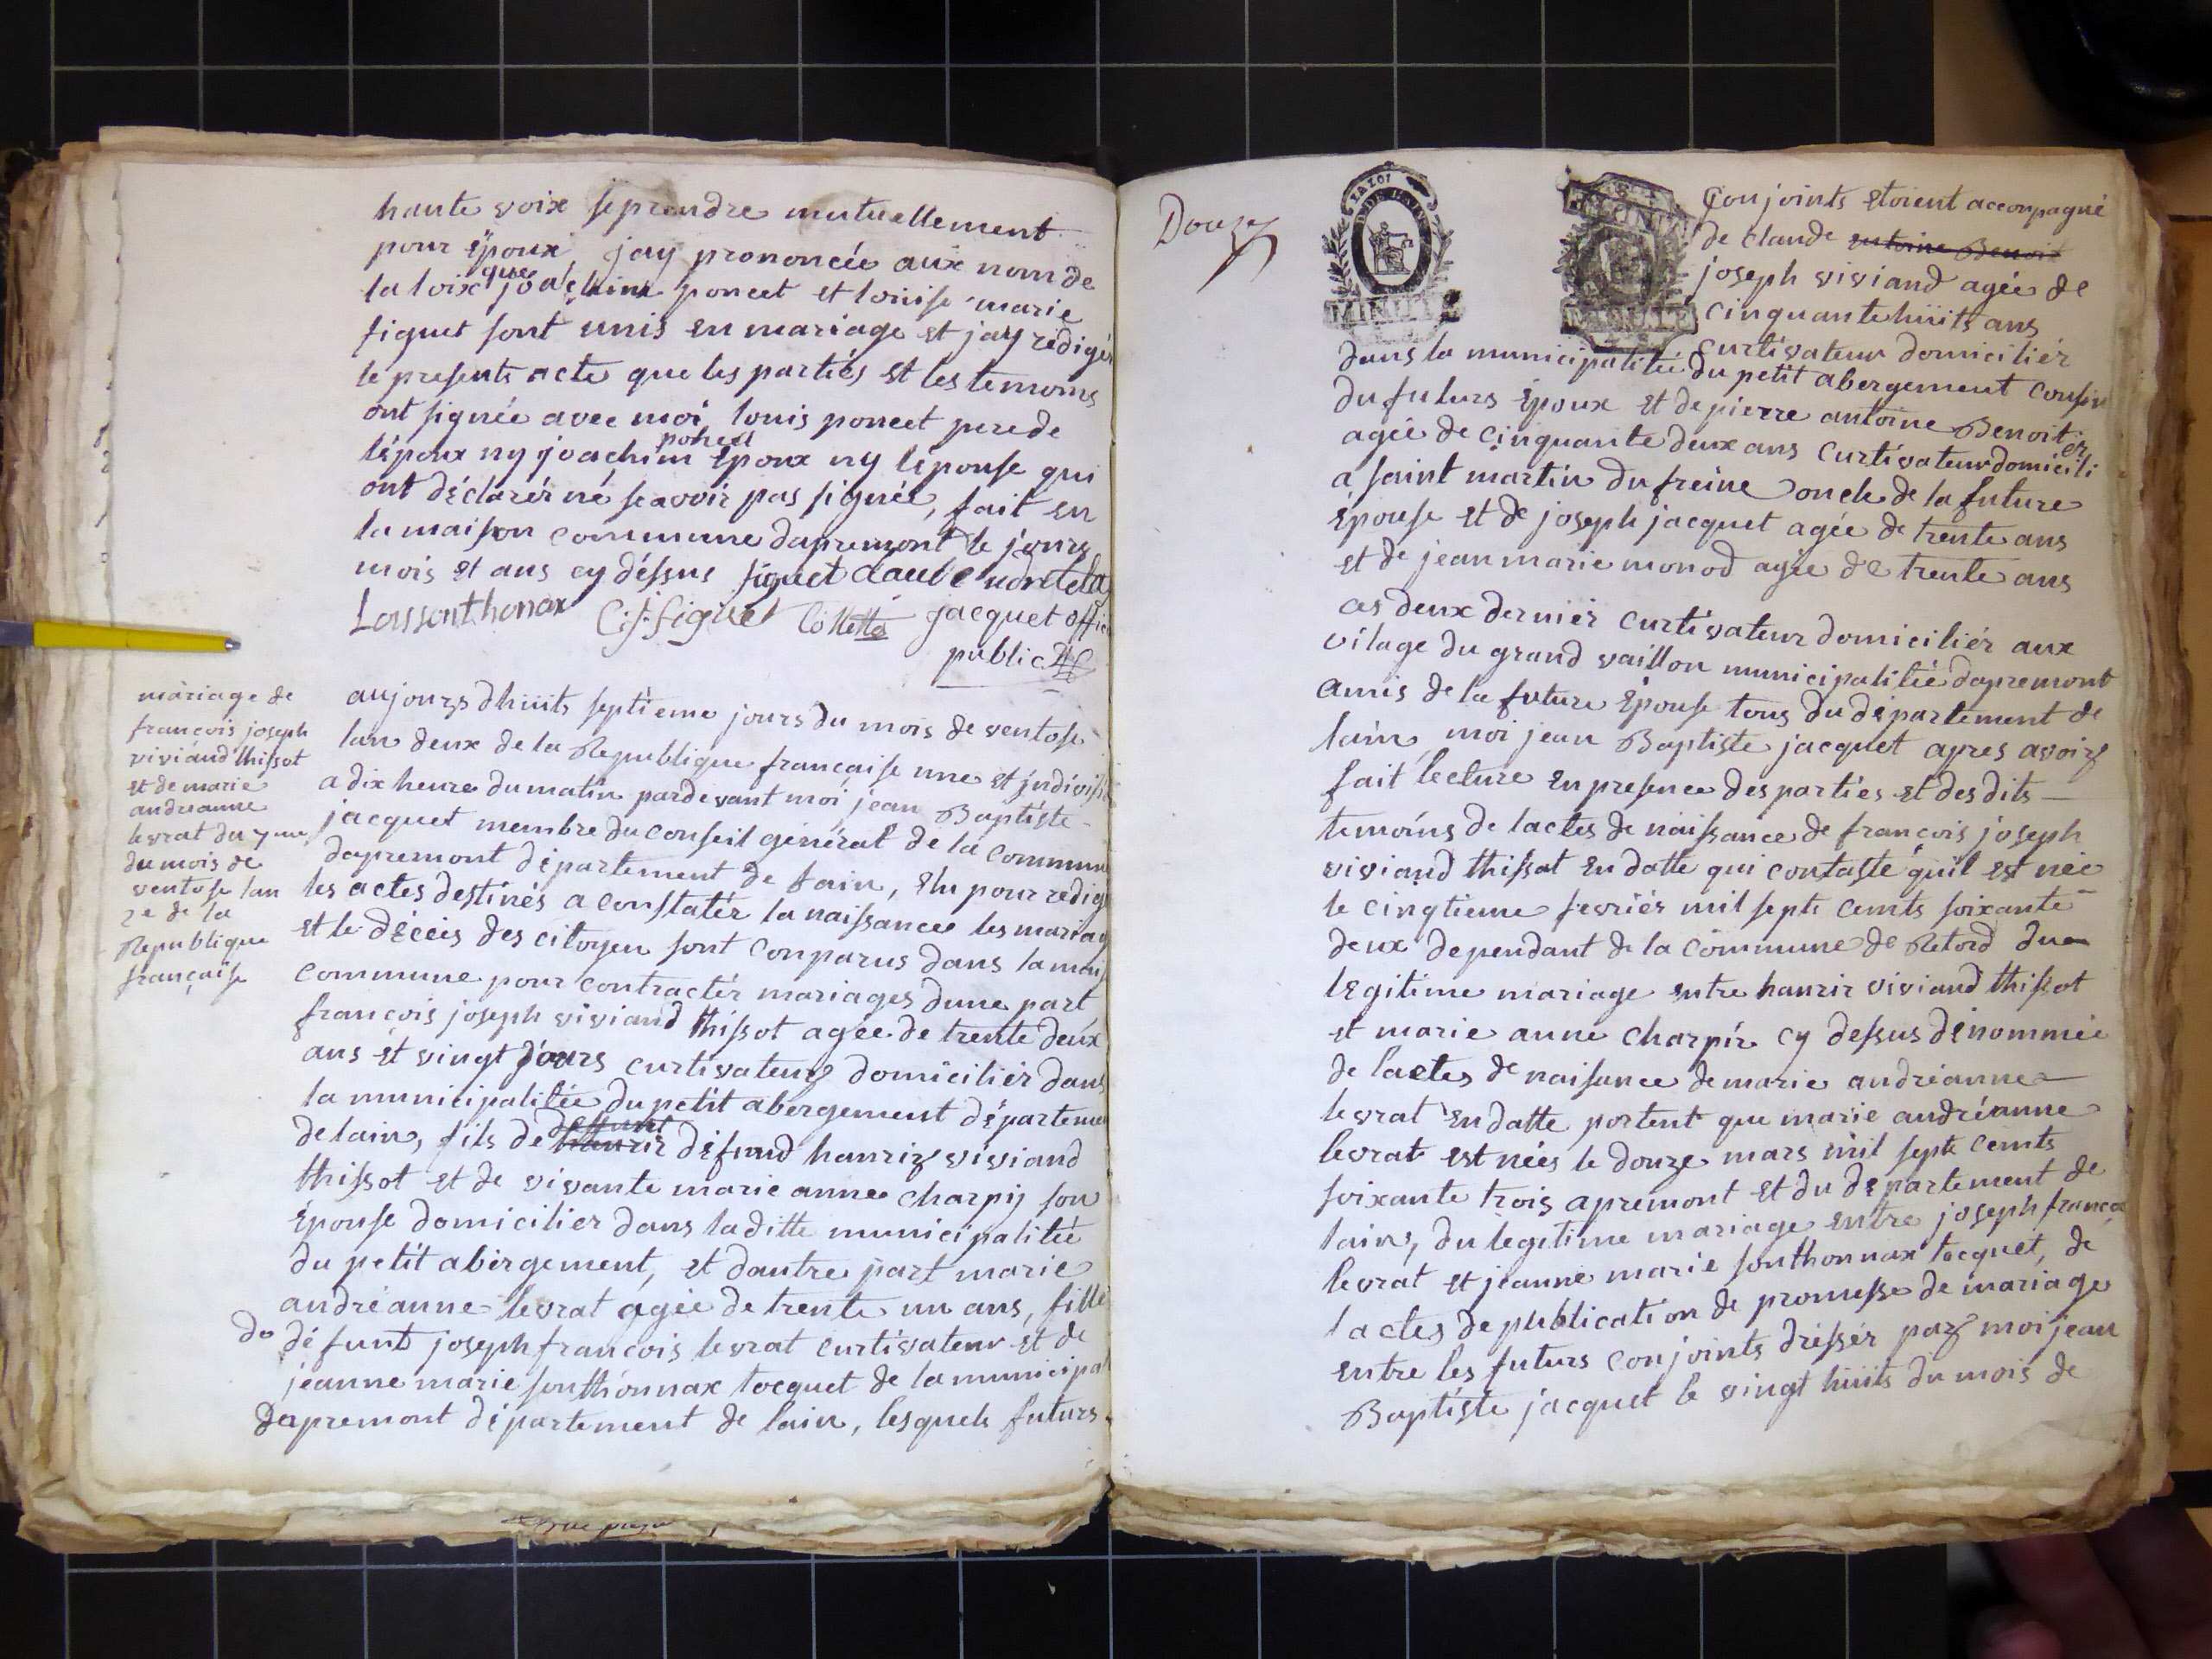 haute voix se prendre mutuellement
pour époux, jay prononcée aux nom de
la loix que joachim poncet et louise marie
figuet sont unis en mariage et jay rédigér
le presents acte que les partiés et les temoins
ont signée avec moi louis poncet pere de
lépoux ny joachim poncet époux ny lépouse qui
ont déclarér né scavoir pas signée, fait en
la maison commune dapremont le jours
mois et ans cy déssus figuet claude
Lassonthonax figuet Collettes jacquet offici
public
mariage de
françois joseph
viviand thissot
et de marie
andréanne
levrat du 7me
du mois de
ventose lan
2e de la
Republique
française
aujours dhuits septieme jours du mois de ventose
lan deux de la Republique française une et jndivisib
a dix heure du matin pardevant moi jean Baptiste
jacquet membre du conseil général de la commune
dapremont département de lain, élu pour rédig
les actes destinés a constatér la naissance les mariag
et le décés des citoyen sont conparus dans la mais
commune pour contractér mariages dune part
françois joseph viviand thissot agée de trente deux
ans et vingt jours curtivateur domiciliér dans
la municipalitée du petit abergement départemen
de lain, fils de deffunt hanrir défund hanrir viviand
thissot et de vivante marie anne charpij son
épouse domicilier dans laditte municipalitée
du petit abergement, et dautre part marie
andréanne levrat agée de trente un ans, fille
de défunt joseph françois levrat curtivateur et de
jeanne marie sonthonnax tocquet de la municipal
dapremont département de lain, lesquels futurs
Douze
LA LOI
MINUTE
Conjoints etoient acconpagné
de claude antoine Benoit
joseph viviand agée de
cinquante huits ans
curtivateur domiciliér
dans la municipalitée du petit abergement cousin
du futurs époux et de pierre antoine Benoit
agée de cinquante deux ans curtivateur domicilier
a saint martin du freine oncle de la future
épouse et de joseph jacquet agée de trente ans
et de jean marie monod agée de trente ans
ces deux derniér curtivateur domiciliér aux
vilage du grand vaillon municipalitée dapremont
amis de la future épouse tous du département de
lain, moi jean Baptiste jacquet apres avoir
fait lecture en presence des partiés et des dits
temoins de lactes de naissance de françois joseph
viviand thissot en datte qui contaste quil est née
le cinqtieme fevriér mil septs cents soixante
deux dependant de la commune de Retord du
légitime mariage entre hanrir viviand thissot
et marie anne charpir cy dessus dénommée
de lactes de naissance de marie andréanne
levrat en datte portent que marie andréanne
levrat est néés le douze mars mil septs cents
soixante trois apremont et du département de
lain, du legitime mariage entre joseph françois
levrat et jeanne marie sonthonnax tocquet, de
lactes de publication de promesse de mariage
entre les futurs conjoints dréssér par moi jean
Baptiste jacquet le vingt huits du mois de